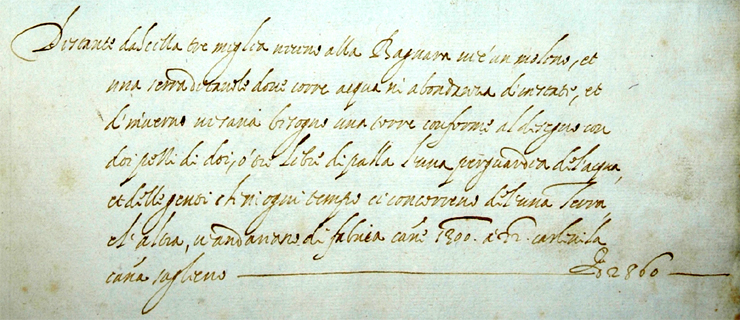 Distante da Scilla tre miglia vicino alla Bagnara vi è un molino, et
una serra di tavole dove corre acqua in abondanza d'instate, et
d'inverno vi saria bisogno una torre conforme al disegno con
doi pezzi di doi, o tre libre di palla l'una per guardia de l'acqua,
et delle genti ch'in ogni tempo ci concorreno de l'una Terra
et l'altra, v'andariano di fabrica cane 1300. a 22. carlini la
cana sagliono 2860